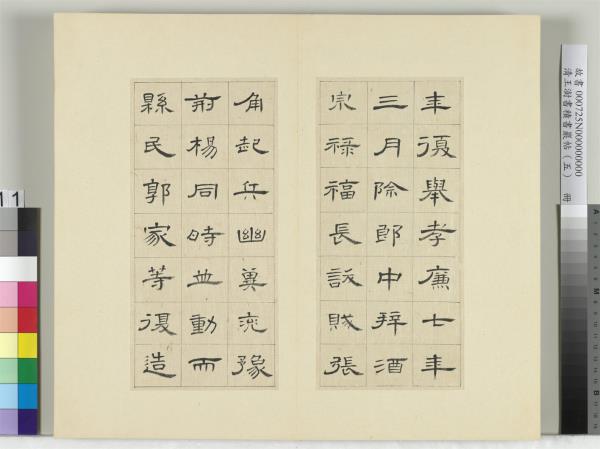 年復舉孝廉七年
三月除郎中拜酒
泉祿福長訞賊張
角起兵幽冀兗豫
荊楊同時並動而
縣民郭家等復造
故書 000725N000000000
清王澍書積書巖帖（五） 冊